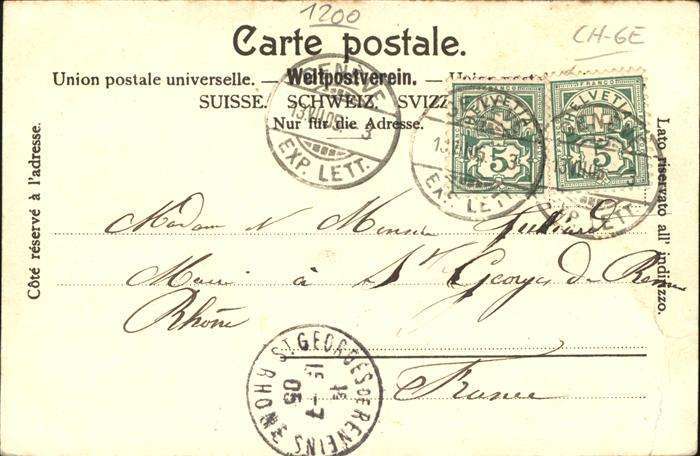 1200
CH-GE
Carte postale.
Union postale universelle. — Weltpostverein. — Union
SUISSE. SCHWEIZ. SVIZZ
Nur für die Adresse.
Côté réservé à l'adresse.
Lato riservato all' indirizzo.
GENÈVE
13.VII.05. 3
EXP. LETT.
HELVETIA
FRANCO
5
EXP. LETT.
HELVETIA
FRANCO
5
EXP. LETT.
Madame & Monsieur
Mairie à St Georges de Reneins
Rhône
France
ST. GEORGES DE RENEINS
15 -7
05
RHONE